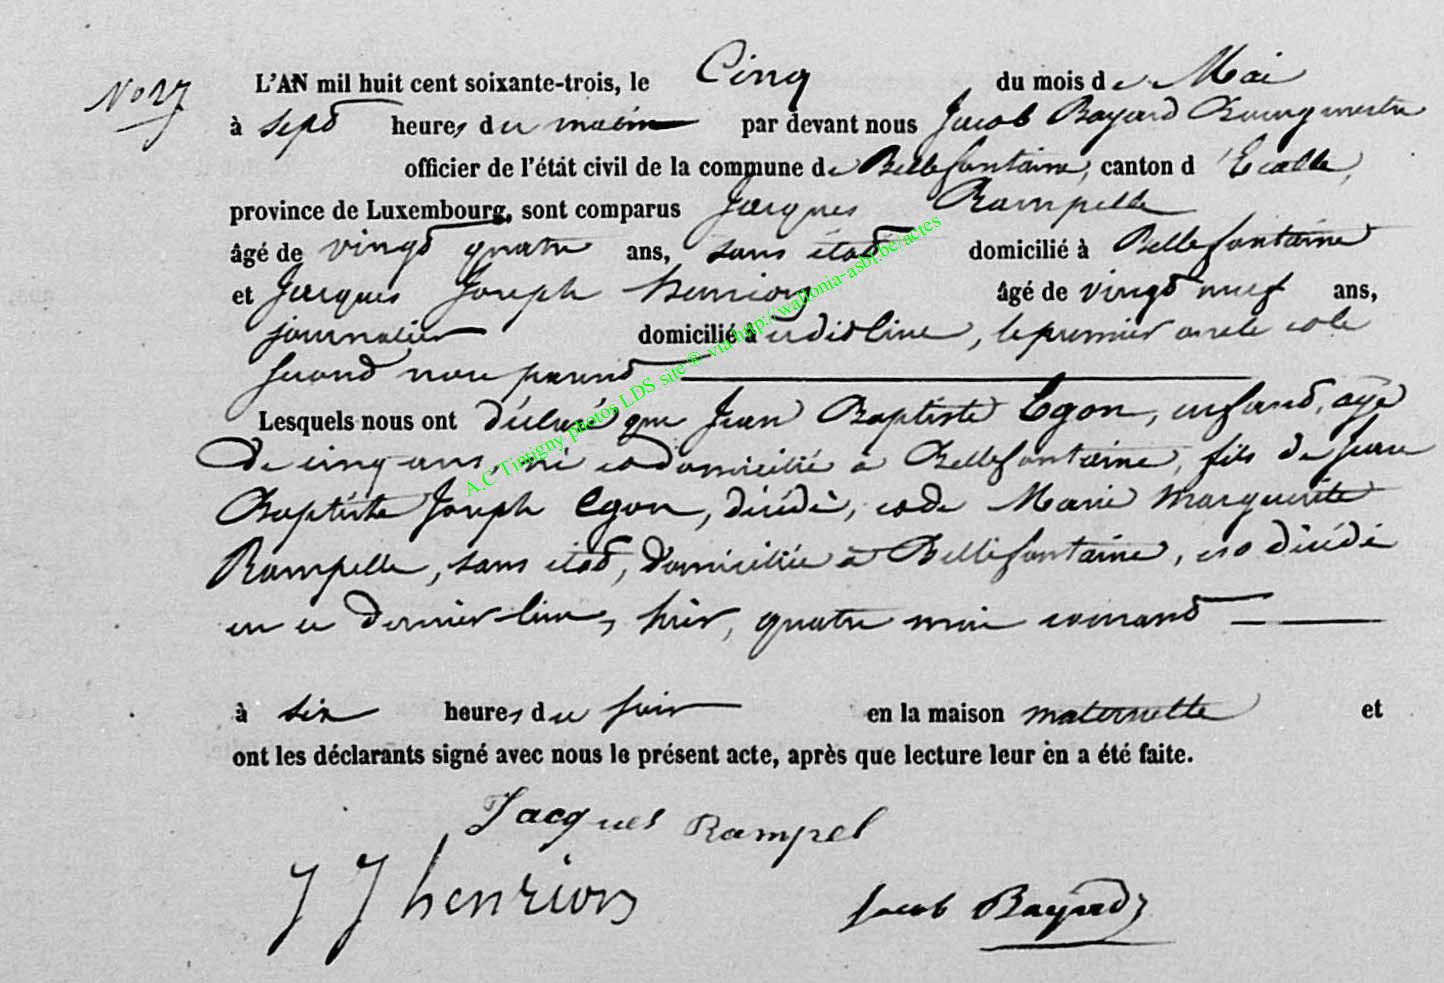 No 27
L'AN mil huit cent soixante-trois, le Cinq du mois de Mai
à sept heures du matin par devant nous Jacob Bayard Bourgmestre
officier de l'état civil de la commune de Bellefontaine, canton d'Etalle,
province de Luxembourg, sont comparus Jacques Rampelle
âgé de vingt quatre ans, sans état domicilié à Bellefontaine
et Jacques Joseph henrion âgé de vingt neuf ans,
journalier domicilié à cedit lieu, le premier oncle et le
second non parent
Lesquels nous ont déclaré que Jean Baptiste Egon, enfant, âgé
de cinq ans, né et domicilié à Bellefontaine, fils de Jean
Baptiste Joseph Egon, décédé, et de Marie Marguerite
Rampelle, sans état, domiciliée à Bellefontaine, est décédé
en ce dernier lieu, hier, quatre mai courant
à six heures du soir en la maison maternelle et
ont les déclarants signé avec nous le présent acte, après que lecture leur en a été faite.
Jacques Rampel
J J henrion
Jacob Bayard
A.C Tintigny photos LDS site © via http://wallonia-asbl.be/actes